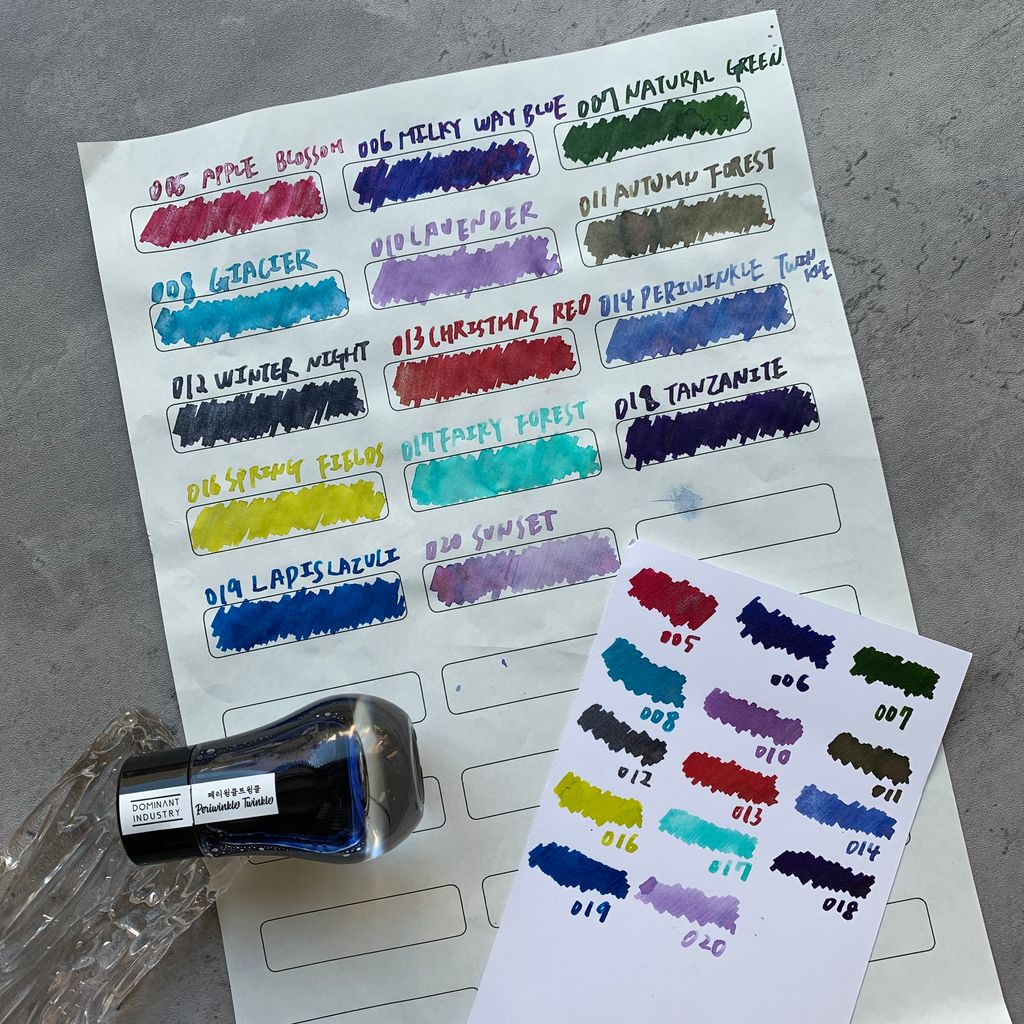 005 APPLE BLOSSOM
006 MILKY WAY BLUE
007 NATURAL GREEN
008 GLACIER
010 LAVENDER
011 AUTUMN FOREST
012 WINTER NIGHT
013 CHRISTMAS RED
014 PERIWINKLE TWINKLE
016 SPRING FIELDS
017 FAIRY FOREST
018 TANZANITE
019 LAPISLAZULI
020 SUNSET
DOMINANT
INDUSTRY
페리윙클트윙클
Periwinkle Twinkle
005
006
007
008
010
011
012
013
014
016
017
018
019
020